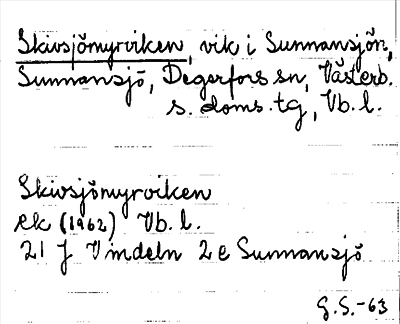 Skivsjömyrviken, vik i Sunnansjön,
Sunnansjö, Degerfors sn, Västerb.
s. doms. tg, Vb. l.
Skivsjömyrviken
ek (1962) Vb. l.
21 J Vindeln 2 e Sunnansjö
G.S.-63